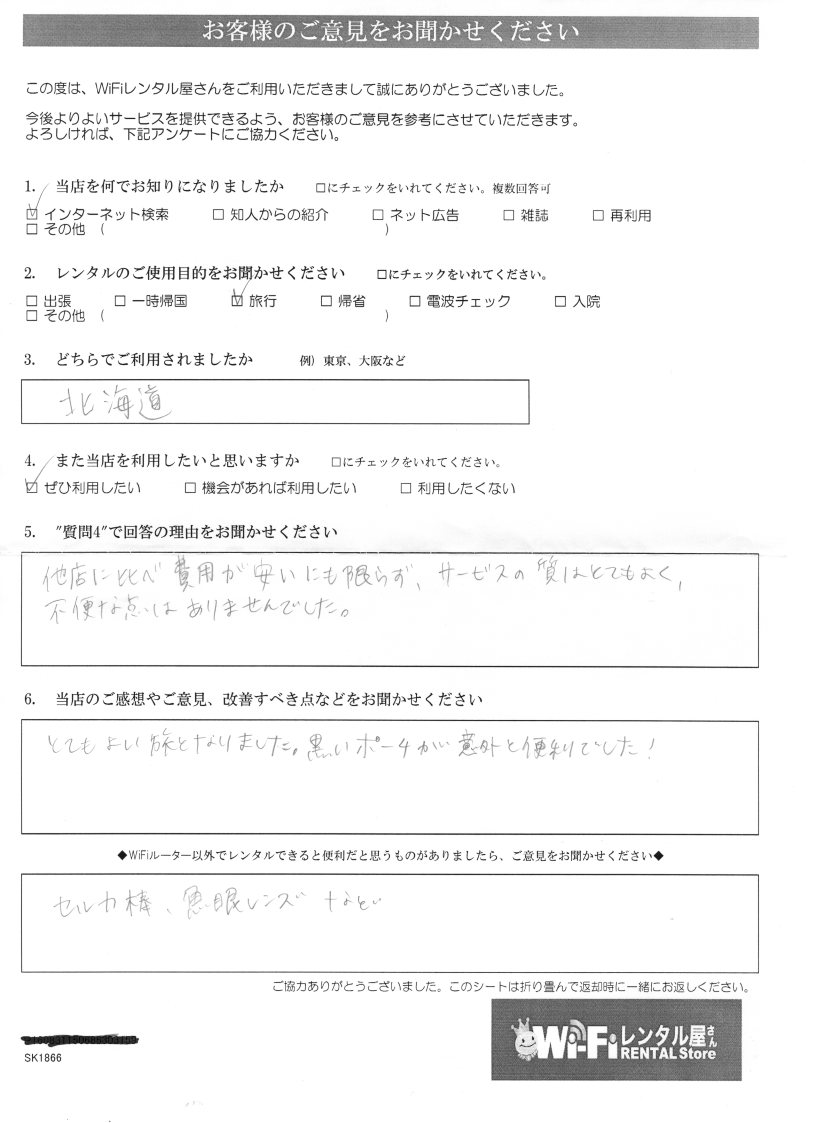 お客様のご意見をお聞かせください
この度は、WiFiレンタル屋さんをご利用いただきまして誠にありがとうございました。
今後よりよいサービスを提供できるよう、お客様のご意見を参考にさせていただきます。
よろしければ、下記アンケートにご協力ください。
1. 当店を何でお知りになりましたか □にチェックをいれてください。複数回答可
☑ インターネット検索 □ 知人からの紹介 □ ネット広告 □ 雑誌 □ 再利用
□ その他 ( )
2. レンタルのご使用目的をお聞かせください □にチェックをいれてください。
□ 出張 □ 一時帰国 ☑ 旅行 □ 帰省 □ 電波チェック □ 入院
□ その他 ( )
3. どちらでご利用されましたか 例）東京、大阪など
北海道
4. また当店を利用したいと思いますか □にチェックをいれてください。
☑ ぜひ利用したい □ 機会があれば利用したい □ 利用したくない
5. "質問4"で回答の理由をお聞かせください
他店に比べ費用が安いにも限らず、サービスの質はとてもよく、
不便な点はありませんでした。
6. 当店のご感想やご意見、改善すべき点などをお聞かせください
とてもよい旅となりました。黒いポーチが意外と便利でした！
◆WiFiルーター以外でレンタルできると便利だと思うものがありましたら、ご意見をお聞かせください◆
セルカ棒、魚眼レンズ などい
ご協力ありがとうございました。このシートは折り畳んで返却時に一緒にお返しください。
Wi-Fiレンタル屋さん
RENTAL Store
SK1866